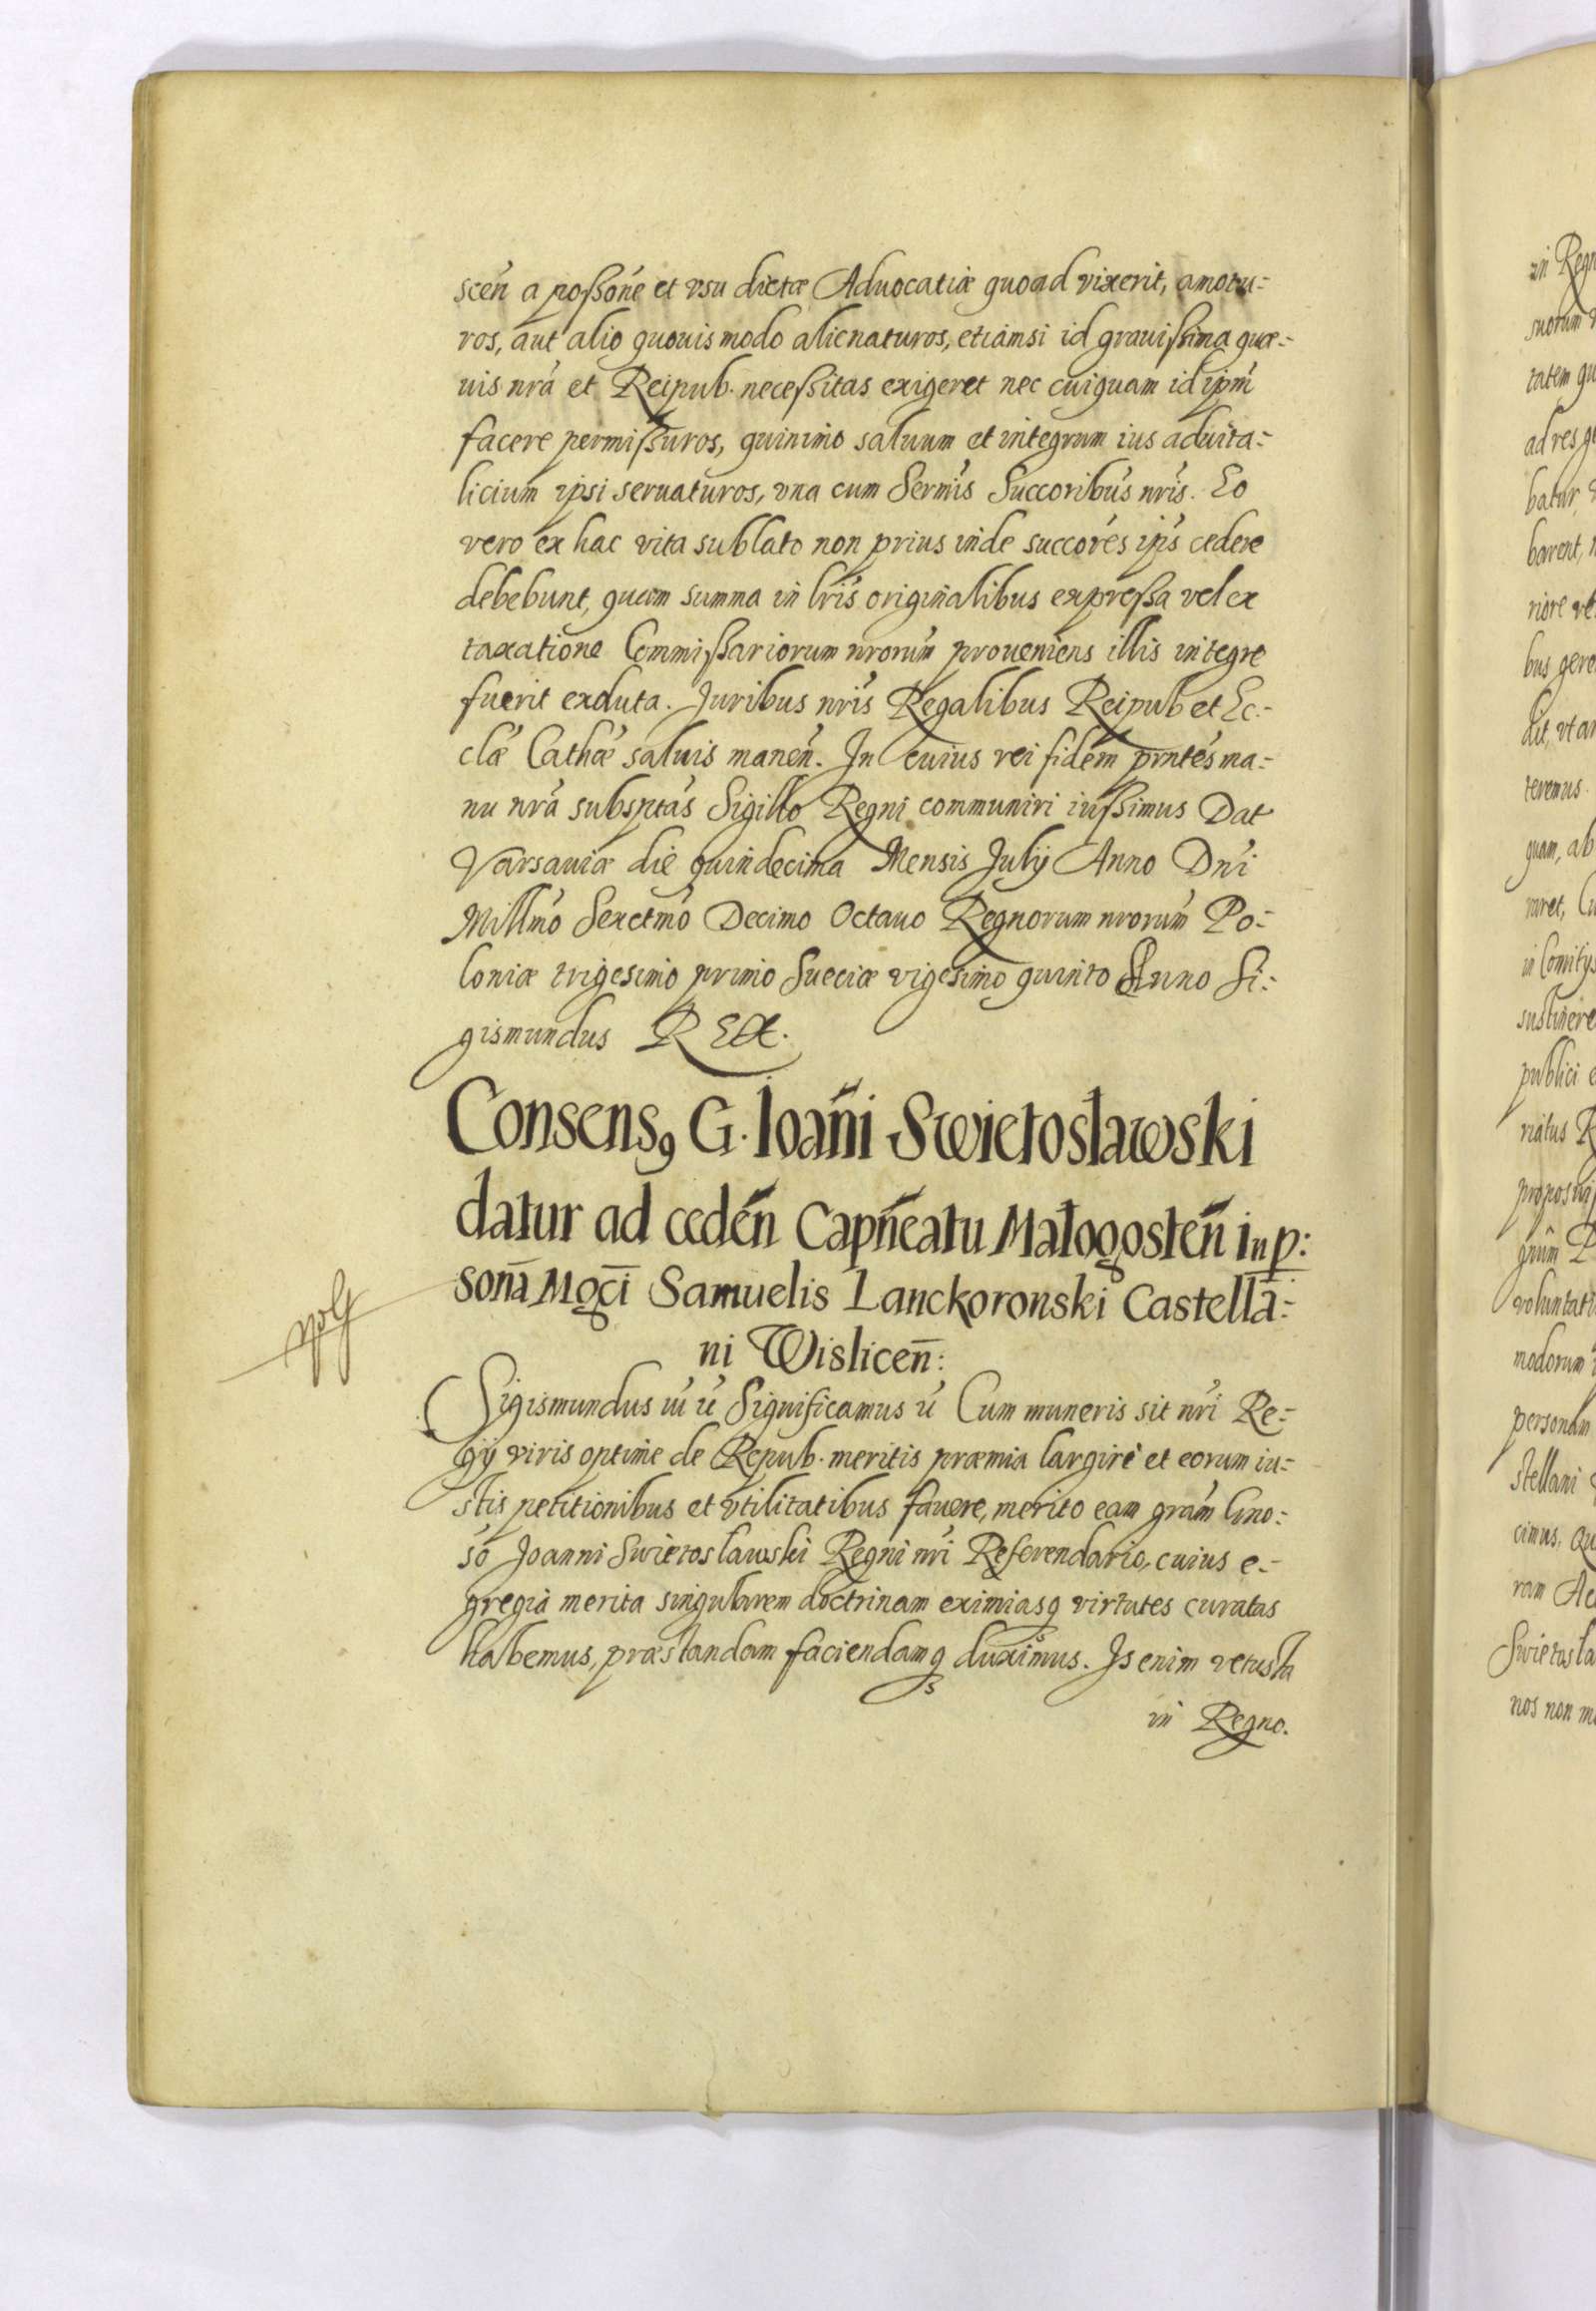 scen̄ a possone et vsu dictæ Aduocatiæ quoad vixerit, amotu=
ros, aut alio quouis modo alienaturos, etiamsi id grauissima quæ=
uis nrā et Reipub. necessitas exigeret nec cuiquam id ipm̄
facere permissuros, quinimo saluum et integrum ius aduita=
licium ipsi seruaturos, vna cum Sermis Succoribus nris. Eo
vero ex hac vita sublato non prius inde succores ipis cedere
debebunt, quam summa in lris originalibus expressa vel ex
taxatione Commissariorum nrorum proueniens illis integre
fuerit exoluta. Juribus nris Regalibus Reipub et Ec=
clæ Cathæ saluis manen̄. In cuius rei fidem prntes ma=
nu nrā subsptas Sigillo Regni communiri iussimus Dat
Varsauiæ die quindecima Mensis Julij Anno Dni
Millmo Sexctmo Decimo Octauo Regnorum nrorum Po=
loniæ trigesimo primo Sueciæ vigesimo quinto Anno Si=
gismundus REX.
Consens9 G. Ioan̄i Swietoslawski
datur ad ceden̄ Capn̄eatu Małogosten̄ in p:
sonā Mgci Samuelis Lanckoronski Castellā=
ni Wislicen̄:
Sigismundus iu ū Significamus ū Cum muneris sit nri Re=
gij viris optime de Repub. meritis præmia largiri et eorum iu=
stis petitionibus et vtilitatibus fauere, merito eam gram Gno=
so Joanni Swietoslawski Regni nri Referendario, cuius e=
gregia merita singularem doctrinam eximiasq virtutes curatas
habemus, præstandam faciendamq duximus. Is enim vetusta
in Regno.
in Regn
suorum
tatem qu
ad res g
batur,
barent,
riore ve
bus gere
dit, vt an
teremus.
quam, ab
raret, Cu
in Comitijs
sustinere
publici
riatus R
proposui
voluntati
modorum
personam
stellani
cimus. Qu
ram Ac
Swietosla
nos non m